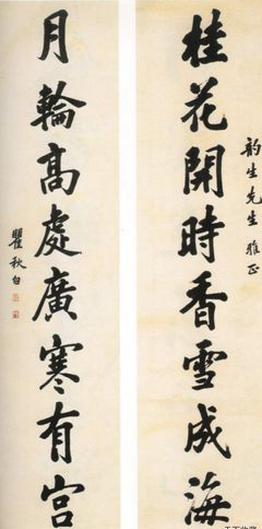 桂花開時香雪成海
韵生先生 雅正
月輪高處廣寒有宮
瞿秋白